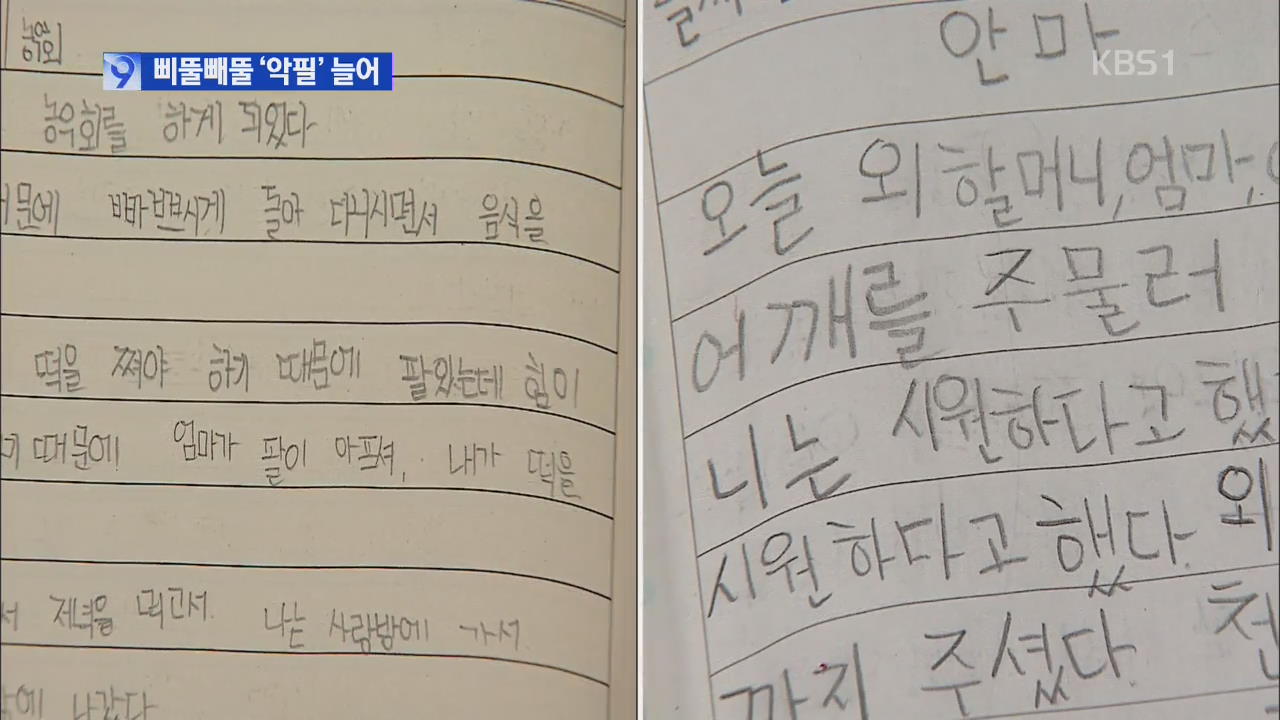 9 삐뚤빼뚤 ‘악필’ 늘어
KBS1
하게 되었다
돌아 다니시면서 음식을
떡을 쪄야 하기 때문에 팔았는데 힘이
때문에 엄마가 팔이 아프셔, 내가 떡을
저녁을 먹고서 나는 사랑방에 가서
안마
오늘 외할머니, 엄마,
어깨를 주물러
니는 시원하다고 했
시원하다고 했다. 외
까지 주셨다.